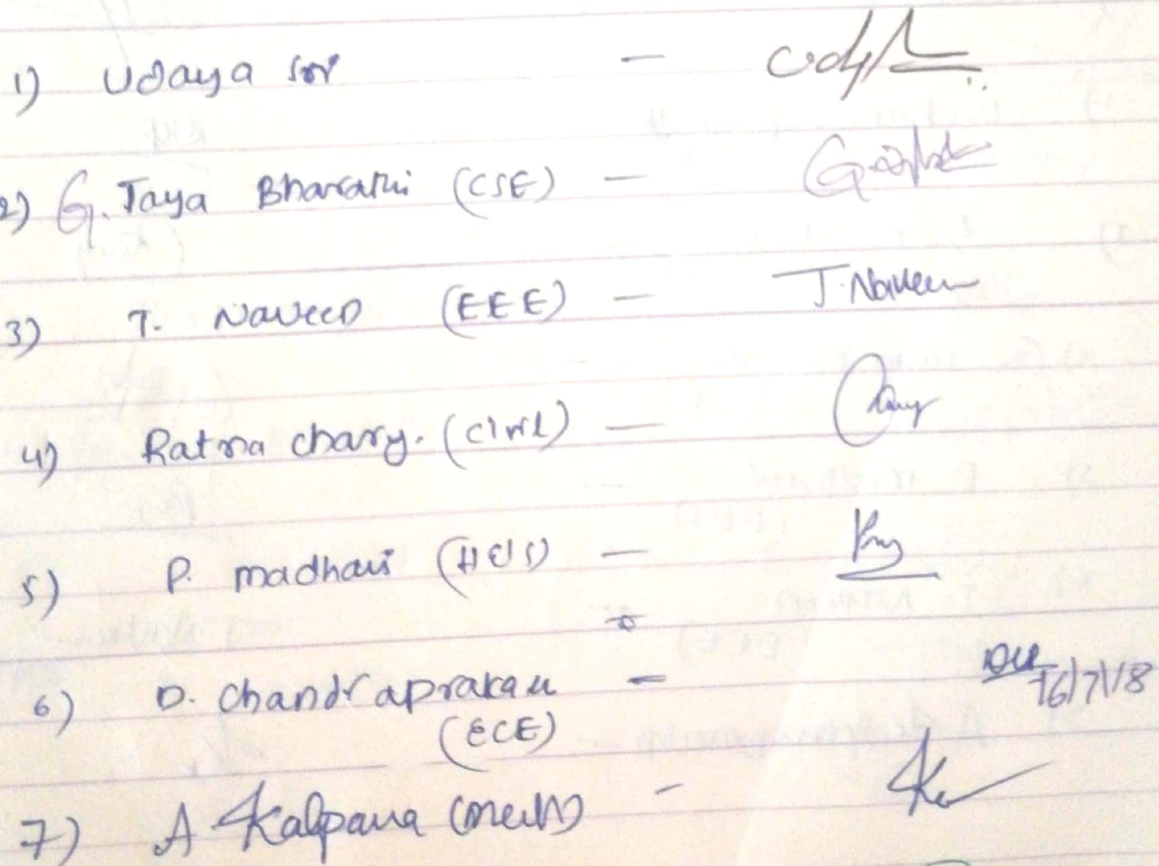 1) Udaya Sri —
2) G. Jaya Bharathi (CSE) —
3) T. Naveen (EEE) — J. Naveen
4) Ratna chary. (civil) —
5) P. madhavi (H&S) —
6) D. Chandraprakash — 16/7/18
(ECE)
7) A Kalpana (mech) -